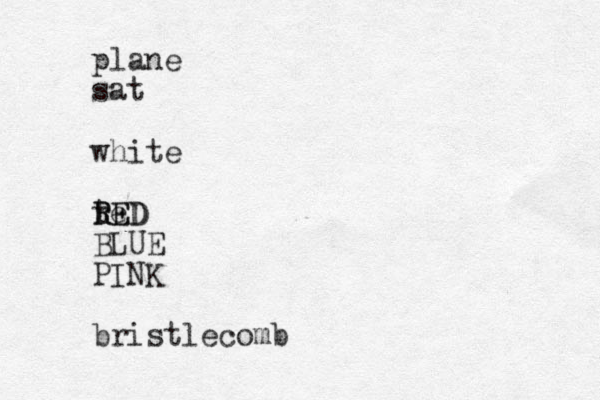 plane
sat
white
RED
BLUE
PINK
bristlecomb